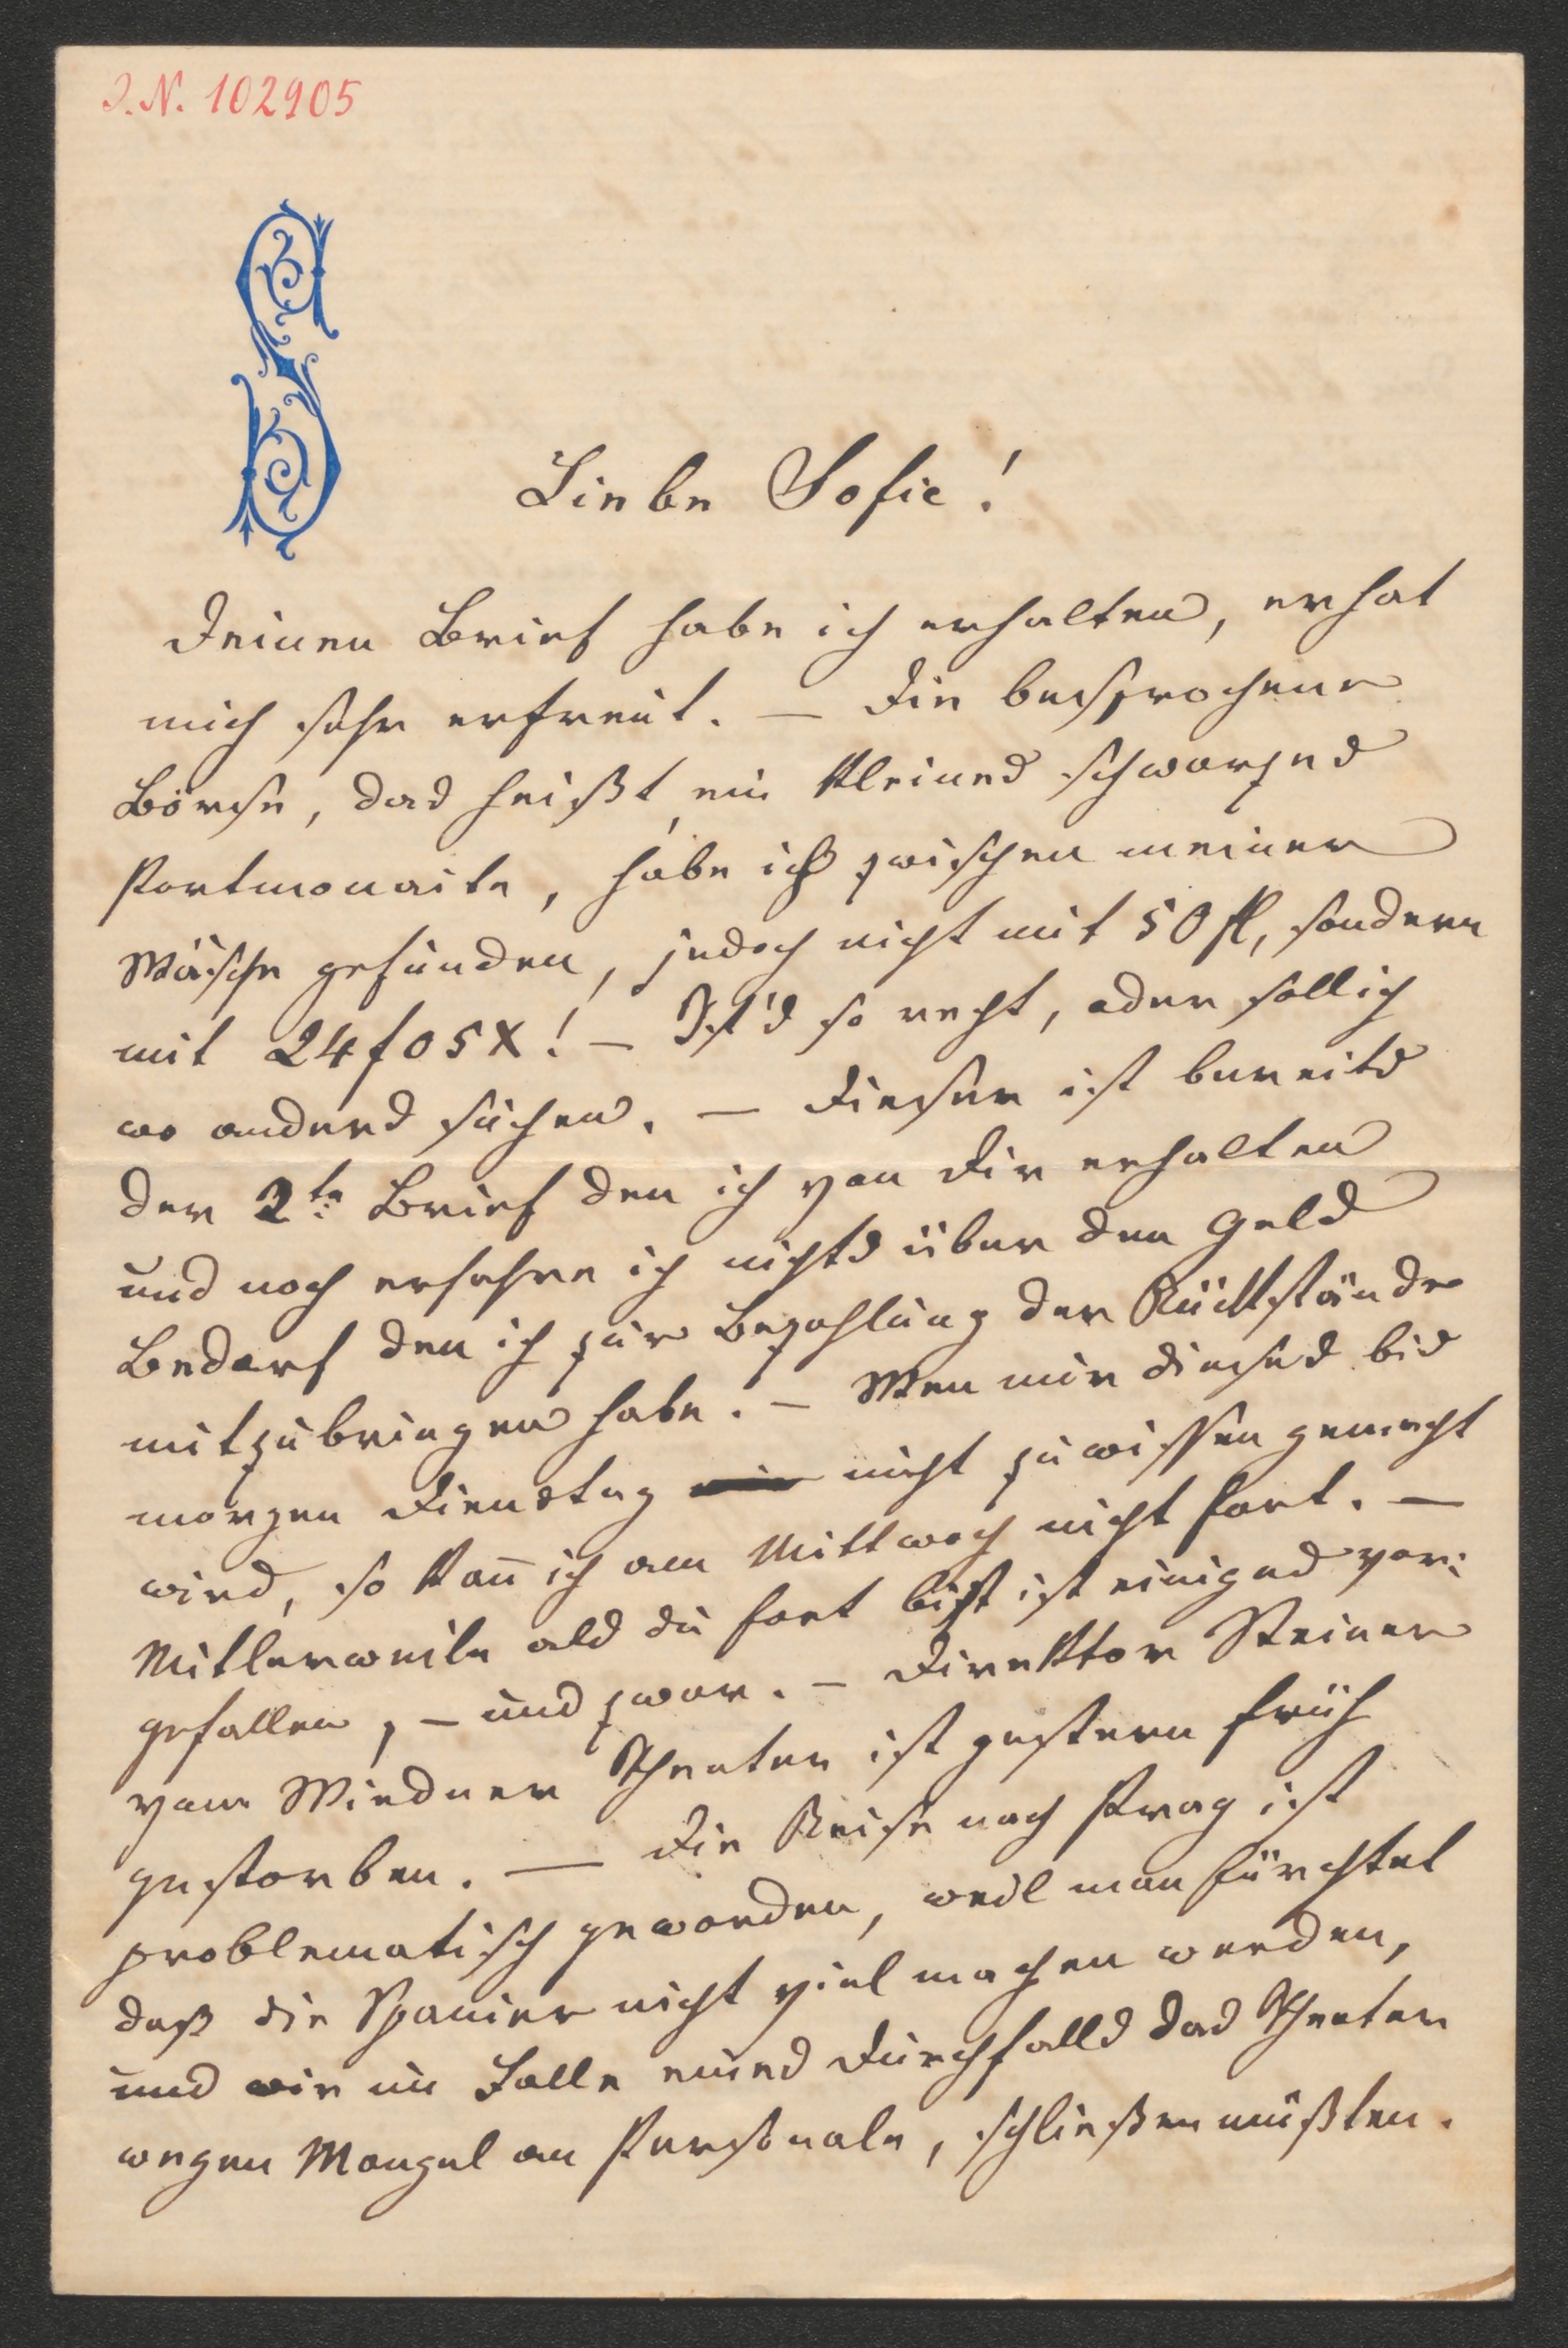 J. N. 102905
Liebe Sofie!
Deinen Brief habe ich erhalten, er hat
mich sehr erfreut. — Die besprochene
Börse, das heißt ein kleines schwarzes
Portmonaite, habe ich zwischen meiner
Wäsche gefunden, jedoch nicht mit 50 fl, sondern
mit 24 f 05 x! — Ist's so recht, oder soll ich
wo anders suchen. — Dieser ist bereits
der 2te Brief den ich von Dir erhalten
und noch erfahre ich nichts über den Geld
Bedarf den ich zur Bezahlung der Rückstände
mitzubringen habe. — Wen mir dieses bis
morgen Dienstag nicht zu wissen gemacht
wird, so kan̄ ich am Mittwoch nicht fort. —
Mitlerweile als du fort bist ist einiges vor:
gefallen, — und zwar. — Direktor Steiner
vom Wiedner Theater ist gestern früh
gestorben. — Die Reise nach Prag ist
problematisch geworden, weil man fürchtet
daß die Spanier nicht viel machen werden,
und wir im Falle eines Durchfalls das Theater
wegen Mangel an Personale, schließen müßten.